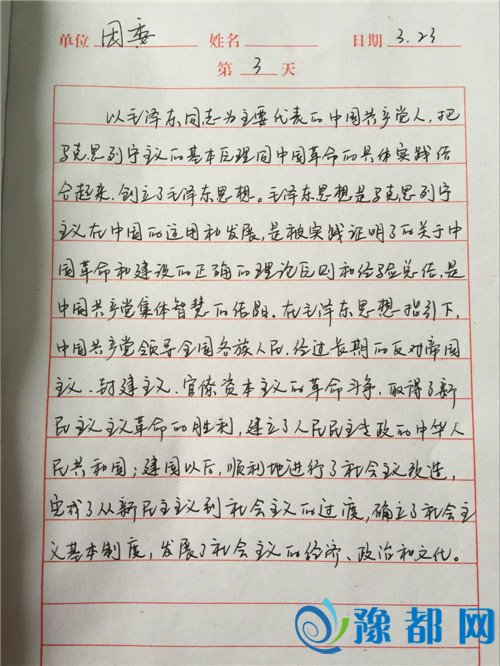 单位 团委 姓名 日期 3.23
第 3 天
以毛泽东同志为主要代表的中国共产党人,把
马克思列宁主义的基本原理同中国革命的具体实践结
合起来,创立了毛泽东思想。毛泽东思想是马克思列宁
主义在中国的运用和发展,是被实践证明了的关于中
国革命和建设的正确的理论原则和经验总结,是
中国共产党集体智慧的结晶。在毛泽东思想指引下,
中国共产党领导全国各族人民,经过长期的反对帝国
主义、封建主义、官僚资本主义的革命斗争,取得了新
民主义主义革命的胜利,建立了人民民主专政的中华人
民共和国;建国以后,顺利地进行了社会主义改造,
完成了从新民主主义到社会主义的过度,确立了社会主
义基本制度,发展了社会主义的经济、政治和文化。
豫都网